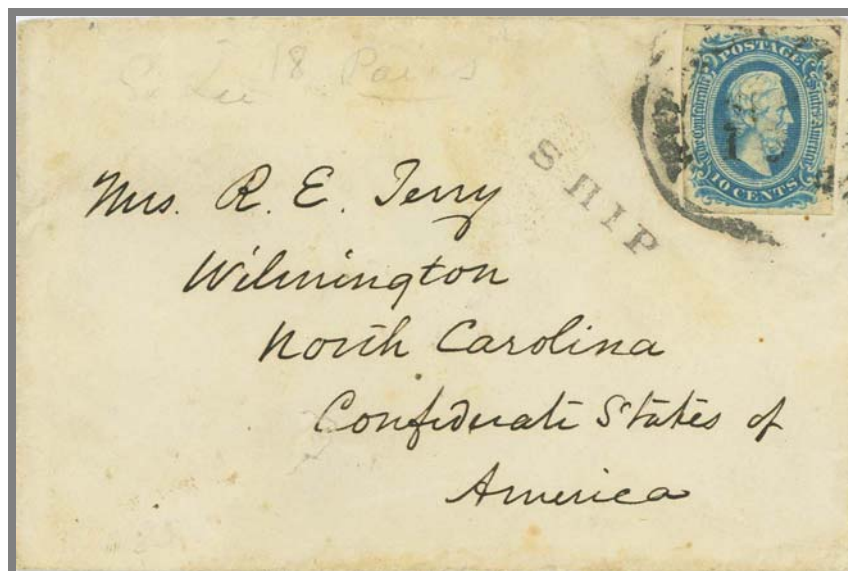 18
POSTAGE
The Confederate States of America
10 CENTS
SHIP
Mrs. R. E. Terry
Wilmington
North Carolina
Confederate States of
America